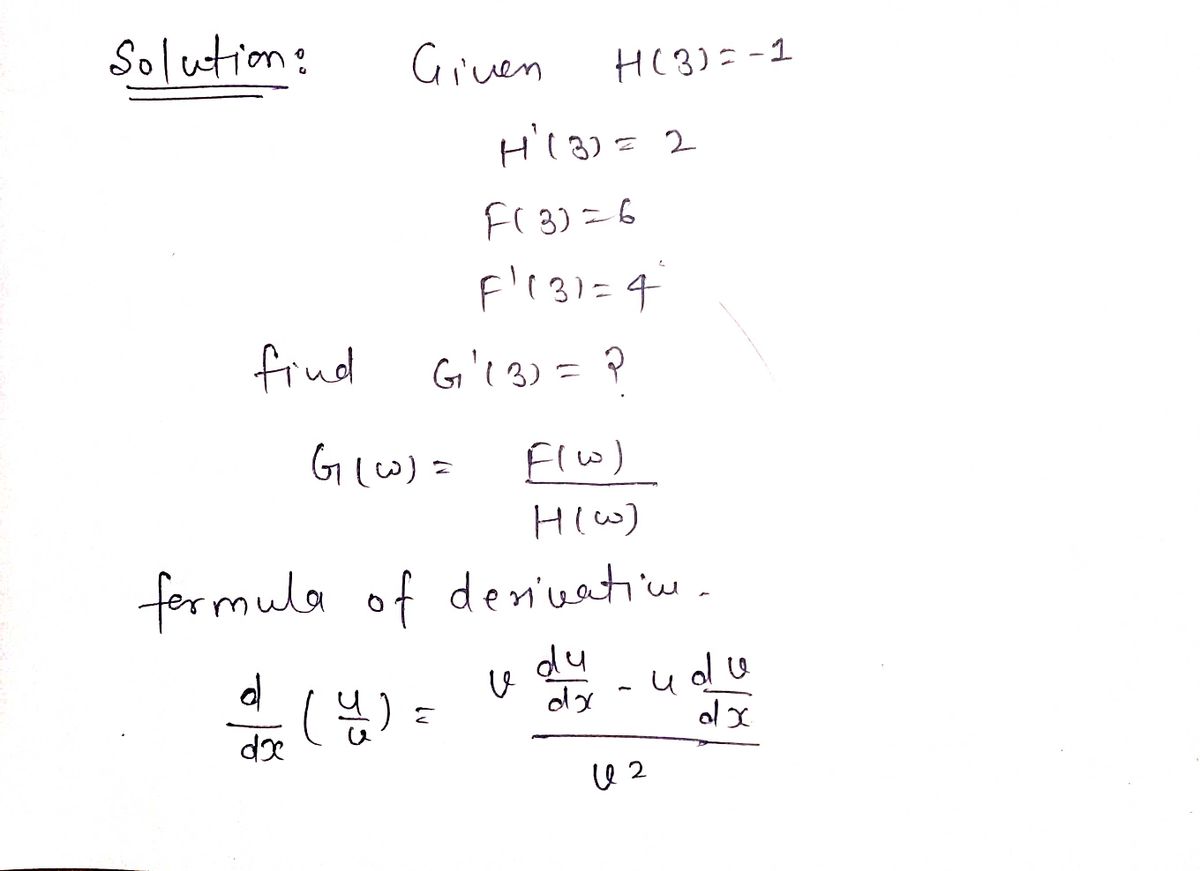 Solution: Given H(3)=-1
H'(3)= 2
F(3)=6
F'(3)=4
find G'(3)= ?
G(w)= F(w)/H(w)
formula of derivative.
d/dx (u/v) = (v du/dx - u dv/dx)/v2